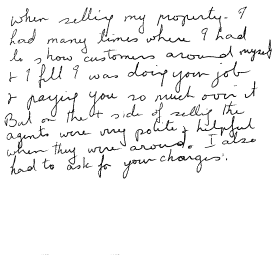 when selling my property. I
had many times where I had
to show customers around myself
& I fell I was doing your job
& paying you so much over it
But on the + side of selling the
agents were very polite & helpful
when they were around. I also
had to ask for your charges.